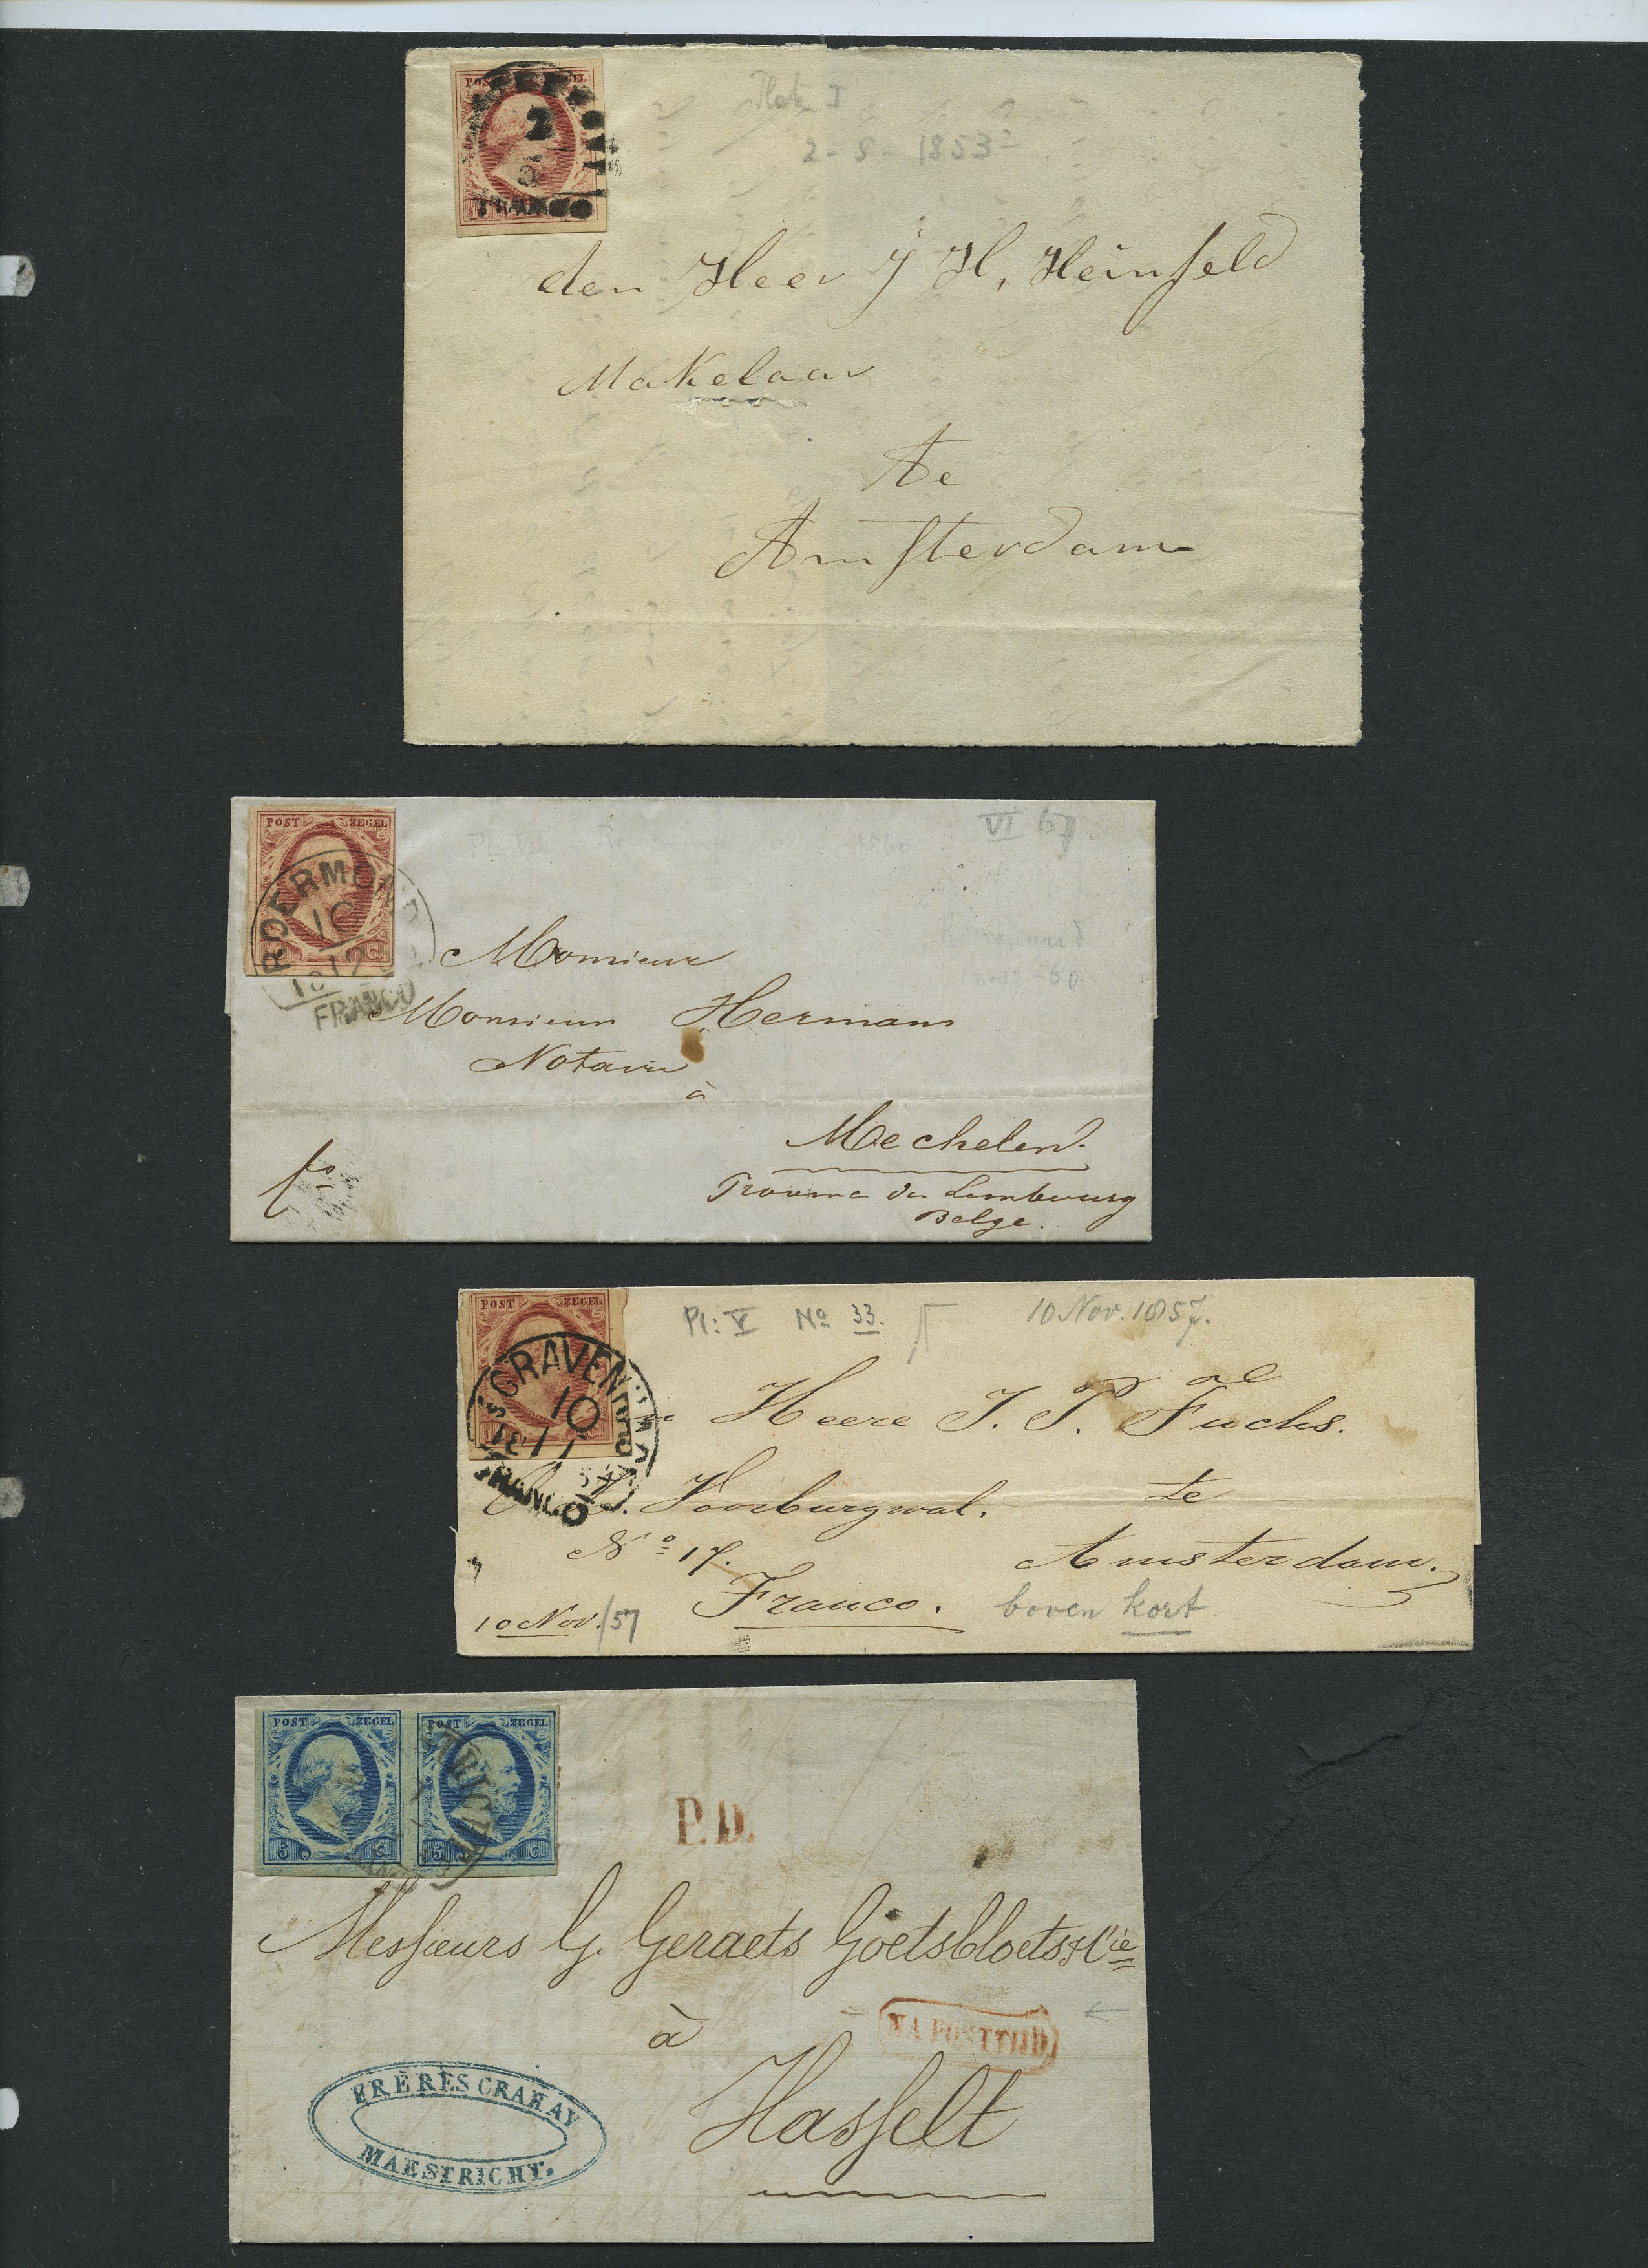 POST ZEGEL
2
5
Plate I
2-5-1853
den Heer J H, Heinfeld
Makelaar
te
Amsterdam
POST ZEGEL
ROERMOND
10
12
FRANCO
VI 67
Monsieur
Monsieur Hermans
Notaire
à
Mechelen.
Province du Limbourg
Belge.
fo
POST ZEGEL
'S GRAVENHAGE
10
11
FRANCO
Pl: V No 33.
10 Nov. 1857.
Heere J. P. Fuchs.
Voorburgwal. te
No 17. Amsterdam.
Franco. boven kort
10 Nov. /57
POST ZEGEL
5 C.
POST ZEGEL
5 C.
P.D.
Messieurs G. Geraets Goetsbloets & Cie
à
NA POSTTIJD
Hasselt
FRÈRES CRAHAY
MAESTRICHT.